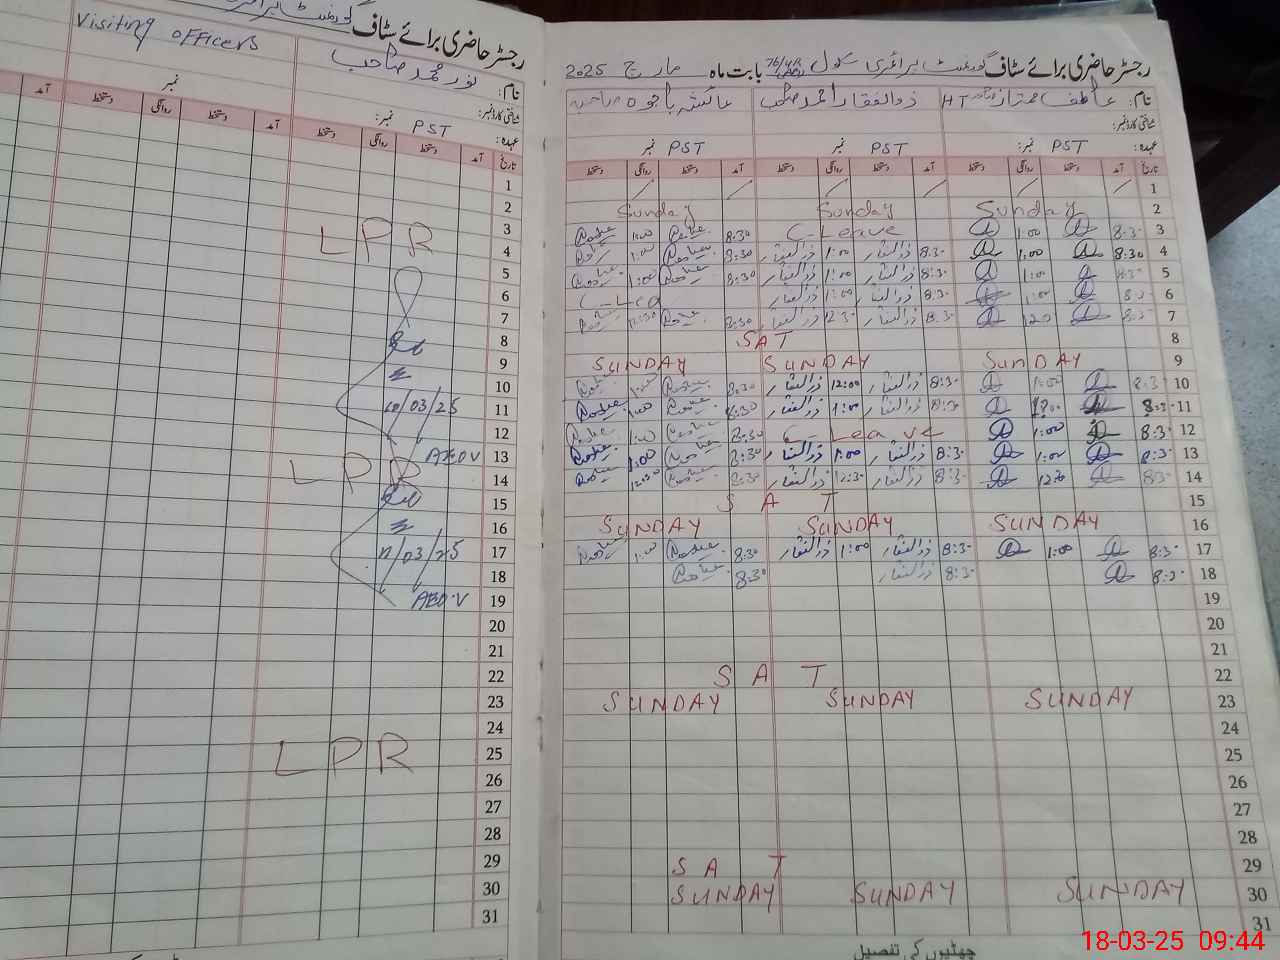 رجسٹر حاضری برائے سٹاف گورنمنٹ پرائمری سکول 76/4R بابت ماہ مارچ 2025
نام: عاطف ممتاز HT ذوالفقار احمد صاحب عائشہ باجوہ صاحبہ
شناختی کارڈ نمبر:
عہدہ: PST نمبر: PST نمبر PST نمبر
تاریخ آمد دستخط روانگی دستخط آمد دستخط روانگی دستخط آمد دستخط روانگی دستخط
1
2 Sunday Sunday Sunday
3 8:30 1:00 C-Leave 8:30 1:00
4 8:30 1:00 8:30 ذوالفقار 1:00 ذوالفقار 8:30 1:00
5 8:30 1:00 8:30 ذوالفقار 1:00 ذوالفقار 8:30 1:00
6 8:30 1:00 8:30 ذوالفقار 1:00 ذوالفقار
7 8:30 8:30 ذوالفقار 12:30 ذوالفقار 8:30 12:30
8 SAT
9 SUNDAY SUNDAY SUNDAY
10 8:30 1:00 8:30 ذوالفقار 12:00 ذوالفقار 8:30 1:00
11 8:30 8:30 ذوالفقار 1:00 ذوالفقار 8:30 1:00
12 8:30 1:00 C-Leave 8:30 1:00
13 8:30 1:00 8:30 ذوالفقار 1:00 ذوالفقار 8:30 1:00
14 8:30 12:30 8:30 ذوالفقار 12:30 ذوالفقار 8:30 12:30
15 SAT
16 SUNDAY SUNDAY SUNDAY
17 8:30 1:00 8:30 ذوالفقار 1:00 ذوالفقار 8:30 1:00
18 8:30 8:30 ذوالفقار 8:30
19
20
21
22 SAT
23 SUNDAY SUNDAY SUNDAY
24
25
26
27
28
29 SAT
30 SUNDAY SUNDAY SUNDAY
31
چھٹیوں کی تفصیل
رجسٹر حاضری برائے سٹاف گورنمنٹ پرائمری
نام: نور محمد صاحب Visiting officers
شناختی کارڈ نمبر:
عہدہ: PST نمبر: نمبر
تاریخ آمد دستخط روانگی دستخط آمد دستخط روانگی دستخط آمد
1
2
3 LPR
4
5
6
7
8
9
10
11 10/03/25
12
13 AEO V
14 LPR
15
16
17 17/03/25
18
19 AEO.V
20
21
22
23
24
25 LPR
26
27
28
29
30
31
18-03-25 09:44